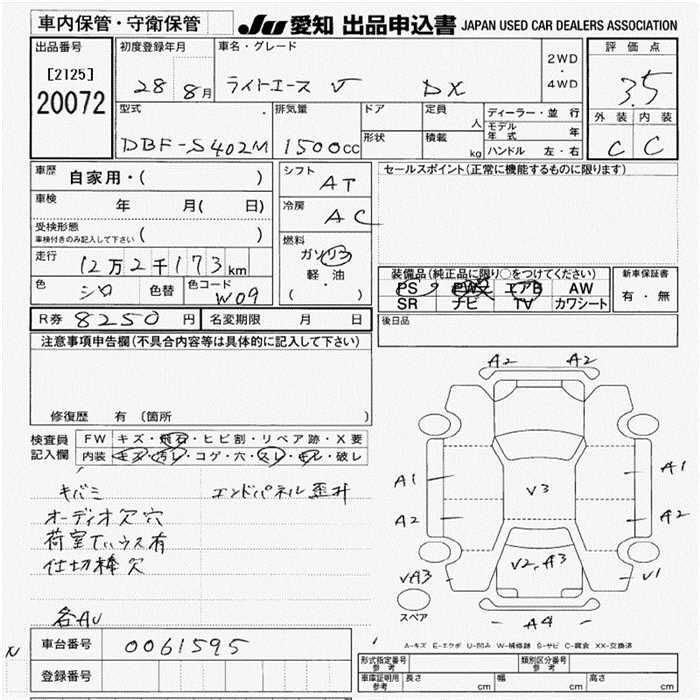 車内保管・守衛保管
JU 愛知 出品申込書 JAPAN USED CAR DEALERS ASSOCIATION
出品番号
[2125]
20072
初度登録年月
28 8月
車名・グレード
ライトエース DX
2WD
・
4WD
評価点
3.5
外装 内装
C C
型式
DBF-S402M
排気量
1500cc
ドア
形状
定員 人
積載 kg
ディーラー・並行
モデル年式 年
ハンドル 左・右
車歴 自家用・( )
車検 年 月( 日)
受検形態
車検付きのみ記入して下さい ( )
走行 12万2千173km
色 シロ 色替 色コード W09
シフト AT
冷房 AC
燃料
ガソリン
軽・油
( ・ )
セールスポイント(正常に機能するものに限ります)
装備品(純正品に限り○をつけてください)
PS PW エアB AW
SR ナビ TV カワシート
新車保証書
有・無
R券 8250円 名変期限 月 日
後日品
注意事項申告欄(不具合内容等は具体的に記入して下さい)
修復歴 有 (箇所 )
検査員記入欄
FW キズ・飛石・ヒビ割・リペア跡・X要
内装 キズ・汚レ・コゲ・穴・スレ・キレ・破レ
キバミ エンドパネル歪井
オーディオ欠穴
荷室ていウス有
仕切棒欠
各AU
A2 A2
A1 A1
V3
A2 A2
V2,A3
VA3 V1
スペア
A4
A-キズ E-エクボ U-凹み W-補修跡 S-サビ C-腐食 XX-交換済
N
車台番号 0061595
登録番号
形式指定番号 参考 類別区分番号 参考
車庫証明用 参考 長さ cm 幅 cm 高さ cm